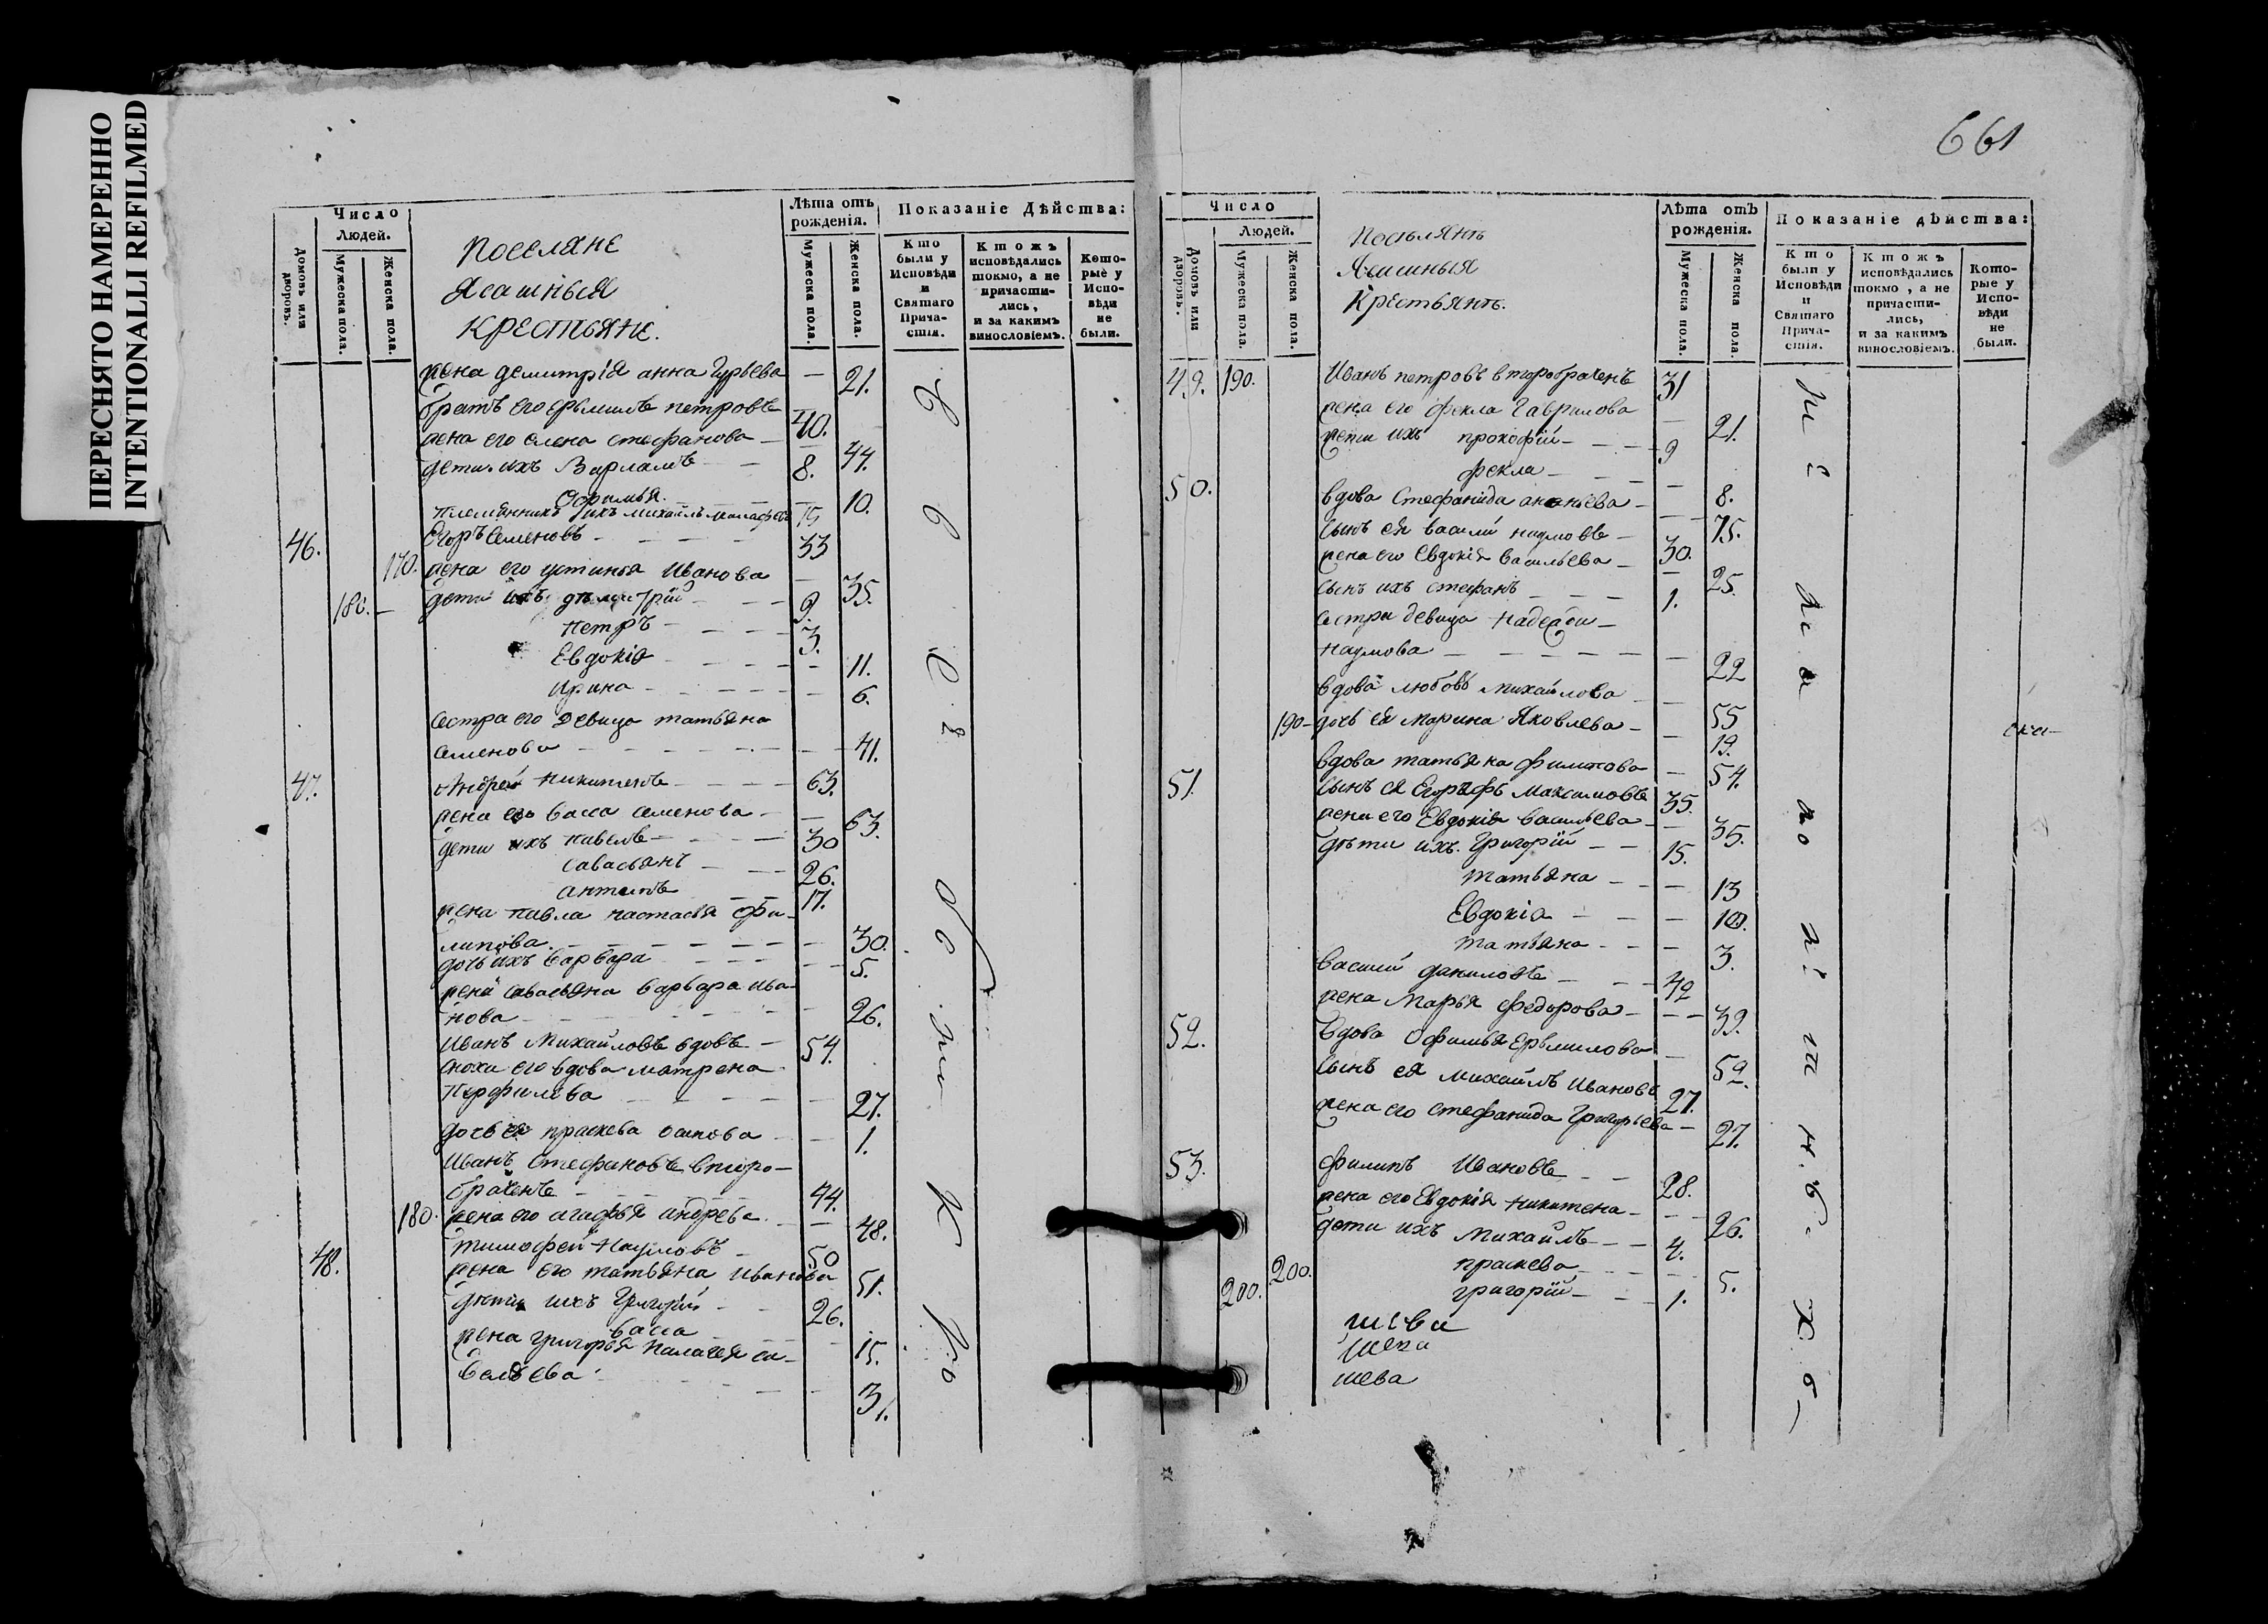 ПЕРЕСНЯТО НАМЕРЕННО
INTENTIONALLI REFILMED
661
Число
Людей.
Домовъ или дворовъ.
Мужеска пола.
Женска пола.
Поселяне
Ясашныя
Крестьяне.
Лѣта отъ рожденія.
Мужеска пола.
Женска пола.
Показаніе Дѣйства:
Кто были у Исповѣди и Святаго Причастія.
Ктожъ исповѣдались токмо, а не причастились, и за какимъ винословіемъ.
Которые у Исповѣди не были.
жена демитрія анна Гурьева — 21.
братъ его ермилъ петровъ 40.
жена его елена стефанова — 44.
дети ихъ Варламъ — 8.
Офимья — 10.
племянникъ ихъ михайлъ 15
46. Егоръ Семеновъ — 33
170. жена его устинья Иванова — 35.
180. — дети ихъ дѣмитрій — 9.
петръ — 3.
Евдокія — 11.
Ирина — 6.
сестра его девица татьяна
семенова — 41.
47. Андрей никитенъ — 63.
жена его васса семенова — 63.
дети ихъ павелъ — 30
савасьянъ — 26.
антипъ — 17.
жена павла настасья фи-
липова — 30.
дочь ихъ варвара — 5.
жена савасьяна варвара ива-
нова — 26.
Иванъ Михайловъ вдовъ — 54.
сноха его вдова матрена
перфильева — 27.
дочь ея праскева осипова — 1.
Иванъ Стефановъ второ-
браченъ — 44.
180. жена его агафья андрева — 48.
48. тимофей Наумовъ — 50
жена его татьяна иванова 51.
дѣти ихъ Григорій — 26.
васса — 15.
жена григорья палагея са-
вельева — 31.
Число
Людей.
Домовъ или дворовъ.
Мужеска пола.
Женска пола.
Посѣлянѣ
Ясашныя
Крестьянѣ.
Лѣта отъ рожденія.
Мужеска пола.
Женска пола.
Показаніе дѣйства:
Кто были у Исповѣди и Святаго Причастія.
Ктожъ исповѣдались токмо, а не причастились, и за какимъ винословіемъ.
Которые у Исповѣди не были.
49. 190. Иванъ петровъ второбраченъ 31
жена его фекла Гаврилова — 21.
дети ихъ прокофій — 9
фекла — 8.
50. вдова Стефанида ананьева — 75.
сынъ ея василій наумовъ — 30.
жена его Евдокія васильева — 25.
сынъ ихъ стефанъ — 1.
сестра девица надежда
наумова — 22
вдова любовь михайлова — 55
190 — дочь ея марина Яковлева — 19.
вдова татьяна филипова — 54.
51. сынъ ея Еграфъ Максимовъ 35.
жена его Евдокія васильева — 35.
дѣти ихъ Григорій — 15.
татьяна — 13
Евдокія — 10.
татьяна — 3.
василій даниловъ — 42
жена Марья федорова — 39.
52. вдова Офимья Ермилова — 52.
сынъ ея михайлъ Ивановъ 27.
жена его стефанида Григорьева — 27.
53. филипъ Ивановъ — 28.
жена его Евдокія никитена — 26.
дети ихъ Михайлъ — 4.
200. праскева — 5.
200. григорій — 1.
шева